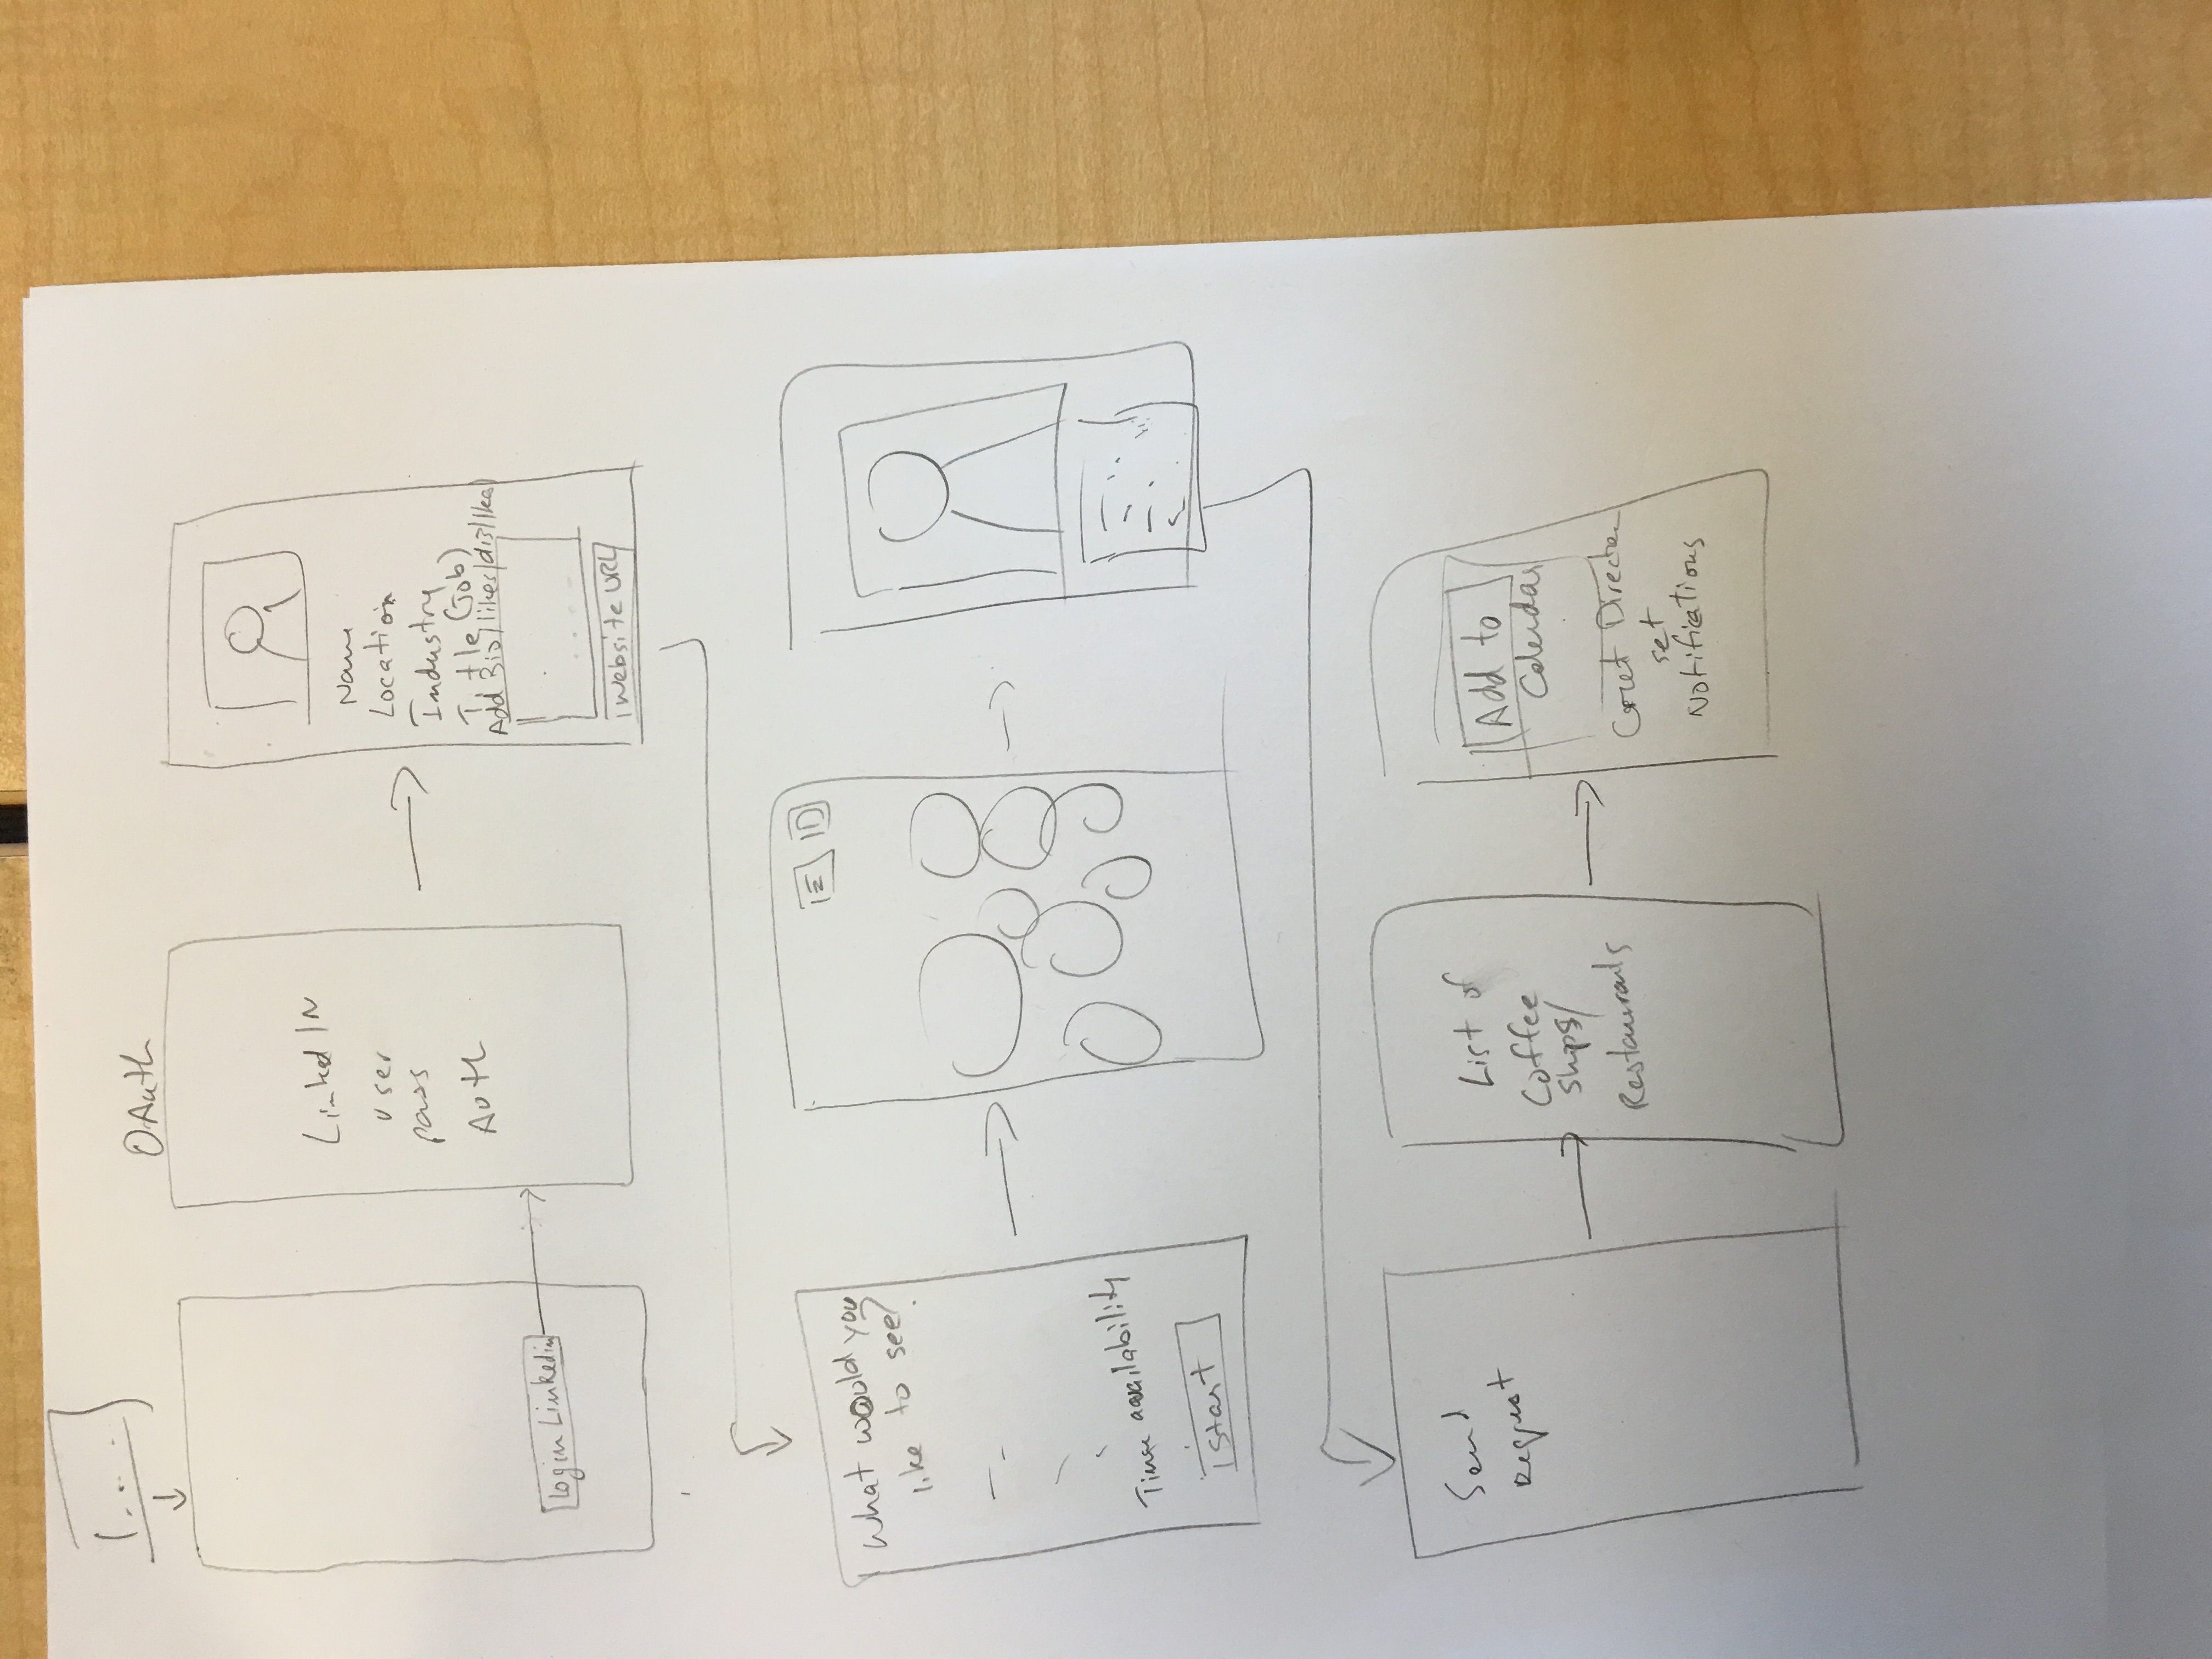 OAuth
LinkedIN
user
pass
Auth
Login Linkedin
Name
Location
Industry
Title (Job)
Add Bio/likes/dislikes
Website URL
What would you
like to see?
Time availability
Start
Send
request
List of
Coffee
Shops/
Restaurants
Add to
Calendar
Direction
set
Notifications